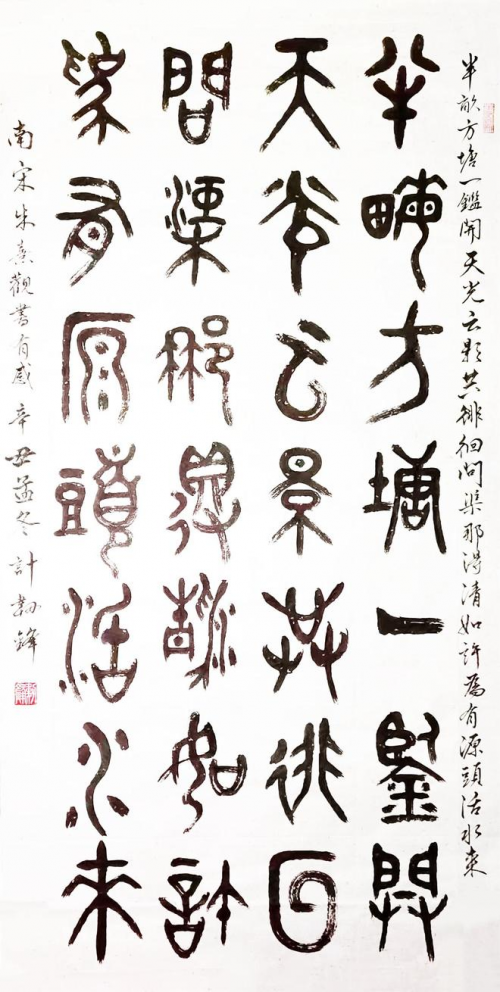 半畝方塘一鑑開天光云影共徘徊问渠那得清如許為有源頭活水来
半畮方塘一鑒開
天光云景共徘回
問渠那得清如許
為有原頭活水來
南宋朱熹觀書有感 辛丑孟冬 計